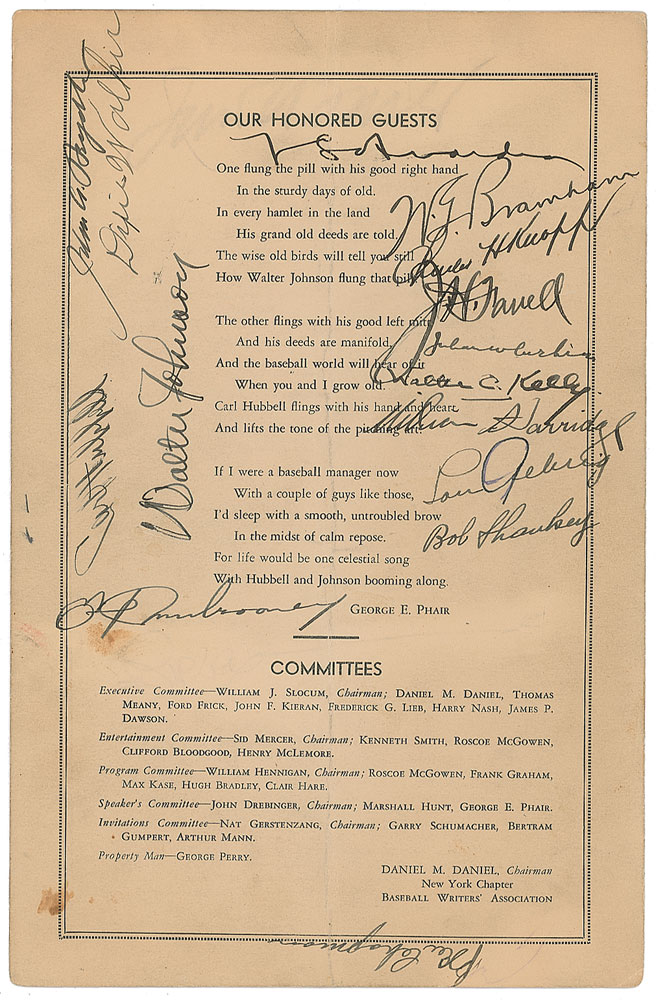 OUR HONORED GUESTS
One flung the pill with his good right hand
In the sturdy days of old.
In every hamlet in the land
His grand old deeds are told.
The wise old birds will tell you still
How Walter Johnson flung that pill.
The other flings with his good left mitt
And his deeds are manifold,
And the baseball world will hear of it
When you and I grow old.
Carl Hubbell flings with his hand and heart
And lifts the tone of the pitching art.
If I were a baseball manager now
With a couple of guys like those,
I'd sleep with a smooth, untroubled brow
In the midst of calm repose.
For life would be one celestial song
With Hubbell and Johnson booming along.
GEORGE E. PHAIR
W. G. Bramham
Charles H Knapp
J. H. Farrell
Walter C. Kelly
William Harridge
Lou Gehrig
Bob Shawkey
Walter Johnson
Carl Hubbell
Dixie Walker
Ben Chapman
COMMITTEES
Executive Committee—WILLIAM J. SLOCUM, Chairman; DANIEL M. DANIEL, THOMAS
MEANY, FORD FRICK, JOHN F. KIERAN, FREDERICK G. LIEB, HARRY NASH, JAMES P.
DAWSON.
Entertainment Committee—SID MERCER, Chairman; KENNETH SMITH, ROSCOE MCGOWEN,
CLIFFORD BLOODGOOD, HENRY MCLEMORE.
Program Committee—WILLIAM HENNIGAN, Chairman; ROSCOE MCGOWEN, FRANK GRAHAM,
MAX KASE, HUGH BRADLEY, CLAIR HARE.
Speaker's Committee—JOHN DREBINGER, Chairman; MARSHALL HUNT, GEORGE E. PHAIR.
Invitations Committee—NAT GERSTENZANG, Chairman; GARRY SCHUMACHER, BERTRAM
GUMPERT, ARTHUR MANN.
Property Man—GEORGE PERRY.
DANIEL M. DANIEL, Chairman
New York Chapter
BASEBALL WRITERS' ASSOCIATION